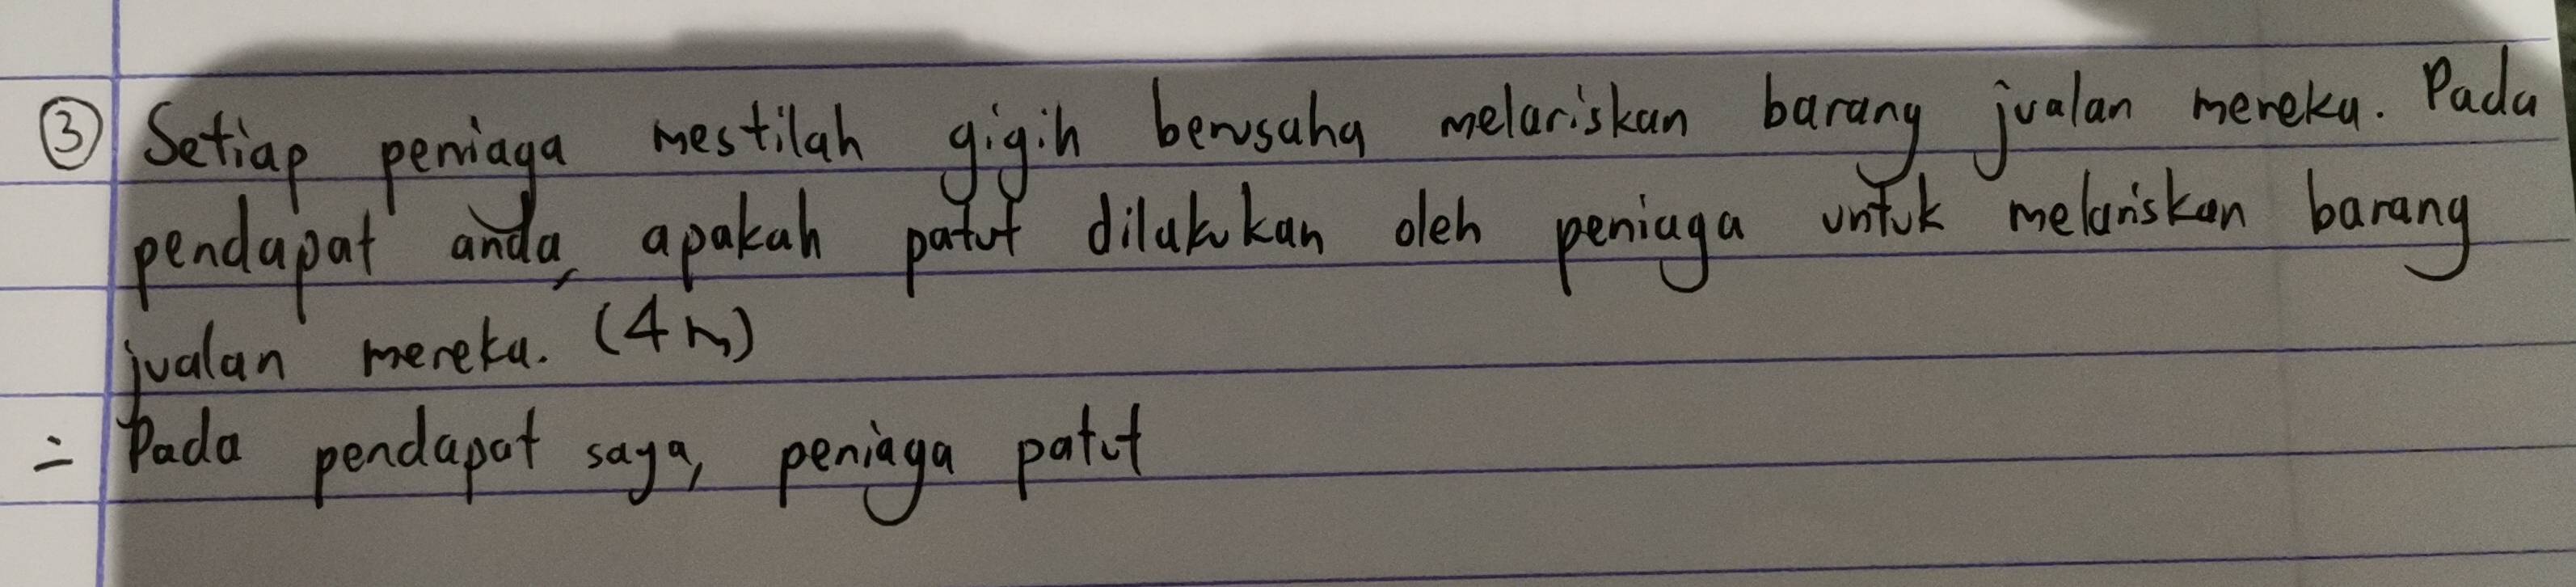 ③ Setiap peniaga mestilah gigih berusaha melariskan barang jualan mereka. Pada
pendapat anda, apakah patut dilakukan oleh peniaga untuk melariskan barang
jualan mereka. (4 m)
= Pada pendapat saya, peniaga patut